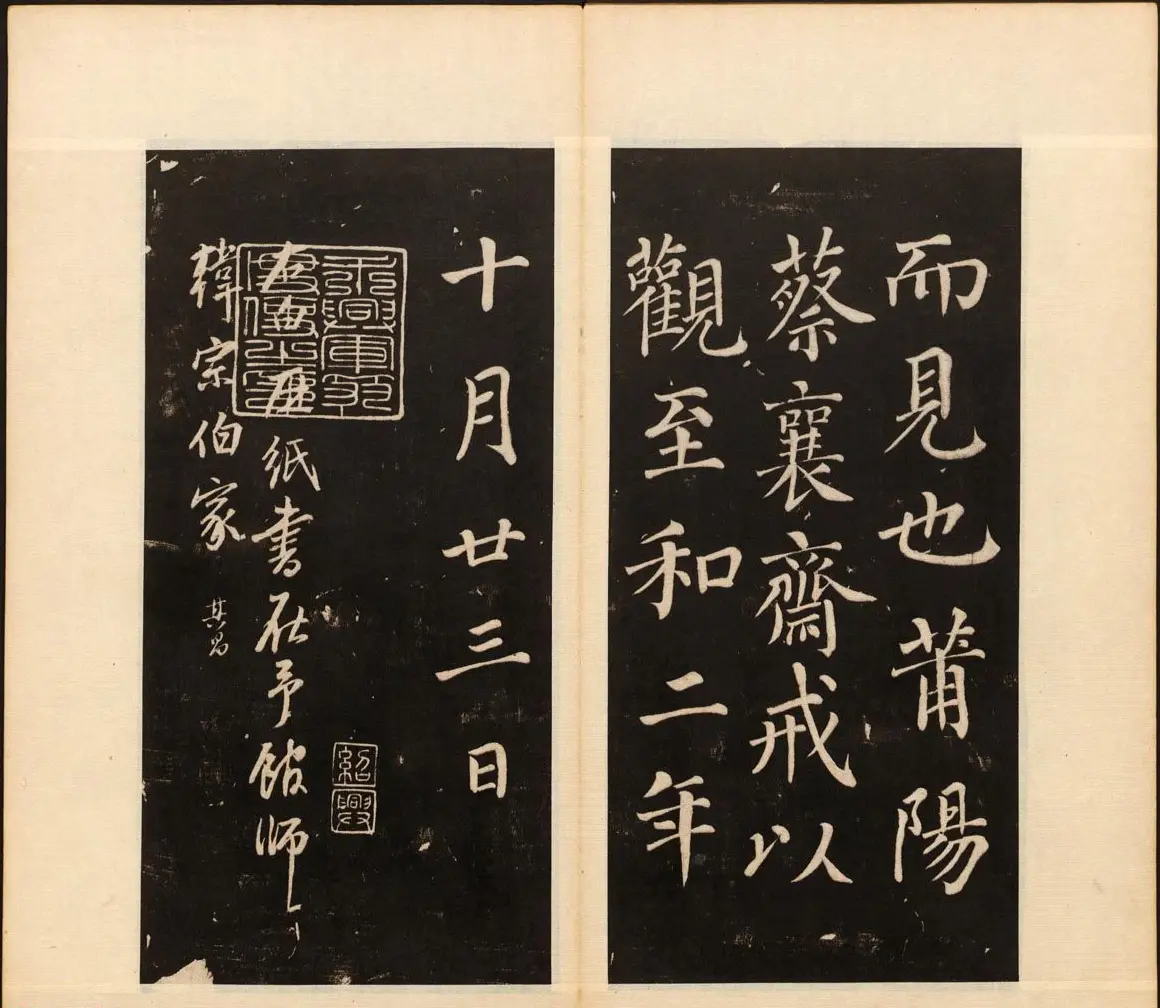 而見也莆陽
蔡襄齋戒以
觀至和二年
十月廿三日
紹興
右麻紙書在予館師
韓宗伯家 其昌